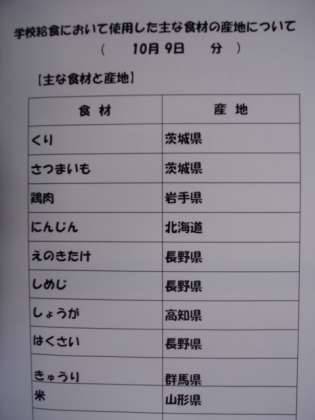 学校給食において使用した主な食材の産地について
( 10月 9日 分 )
【主な食材と産地】
食 材 産 地
くり 茨城県
さつまいも 茨城県
鶏肉 岩手県
にんじん 北海道
えのきたけ 長野県
しめじ 長野県
しょうが 高知県
はくさい 長野県
きゅうり 群馬県
米 山形県